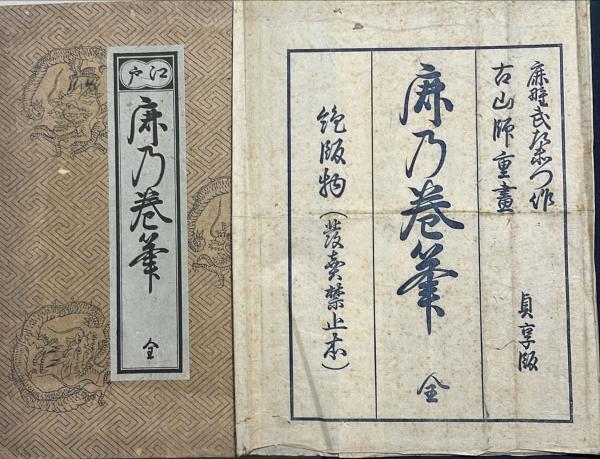 鹿野武左衛門作
古山師重畫
貞享版
鹿乃巻筆 全
絶版物(發賣禁止本)
江戸
鹿乃巻筆
全